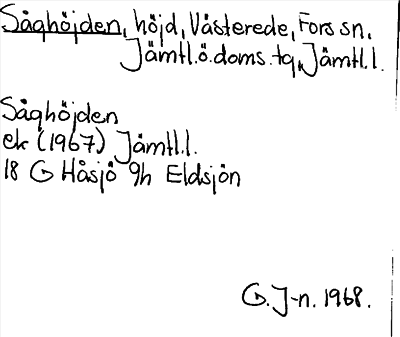 Såghöjden, höjd, Västerede, Fors sn,
Jämtl.ö.doms. tg, Jämtl.l.
Såghöjden
ek (1967) Jämtl.l.
18 G Håsjö 9h Eldsjön
G. J-n. 1968.